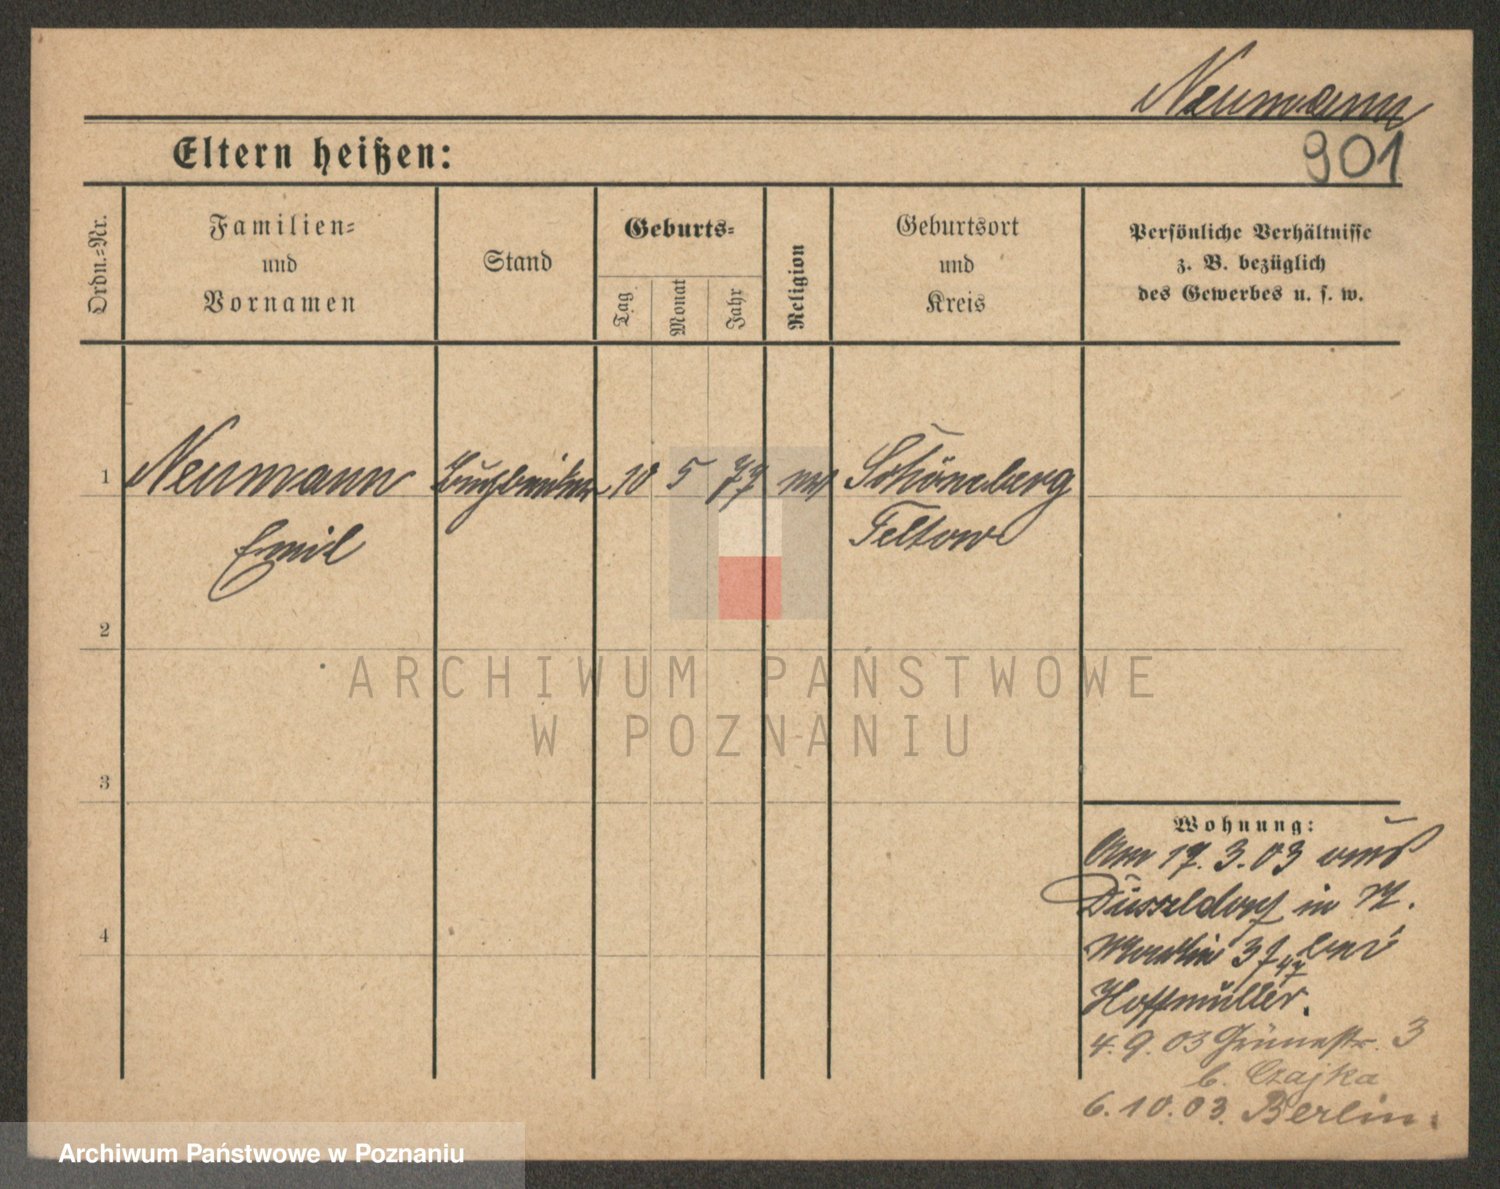 Neumann
901
Eltern heißen:
Ordn.=Nr.
Familien=
und
Vornamen
Stand
Geburts=
Tag
Monat
Jahr
Religion
Geburtsort
und
Kreis
Persönliche Verhältnisse
z. B. bezüglich
des Gewerbes u. s. w.
1
Neumann 10 5 77 Schöneberg
Emil Teltow
2
ARCHIWUM PAŃSTWOWE
W POZNANIU
3
Wohnung:
Am 17.3.03 aus
Düsseldorf in
4
bei
Hoffmüller.
4.9.03 Grünestr. 3
b. Czajka
6.10.03. Berlin.
Archiwum Państwowe w Poznaniu